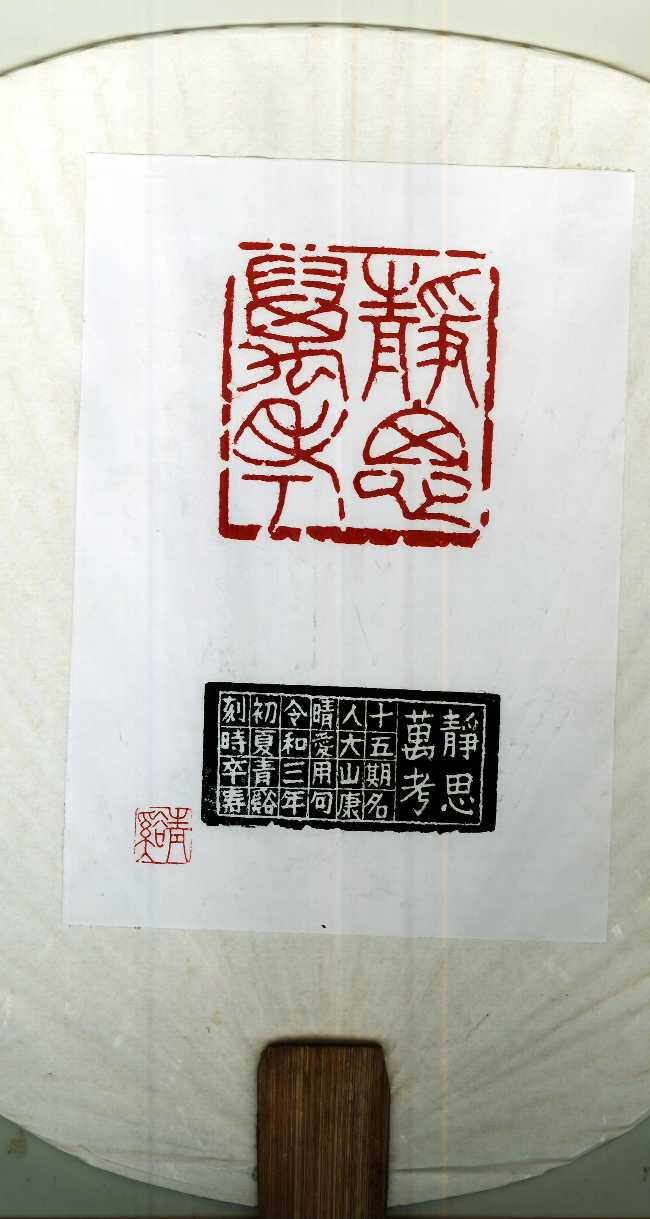 靜思
萬考
靜思
萬考
十五期名
人大山康
晴愛用句
令和三年
初夏青谿
刻時卒寿
青谿